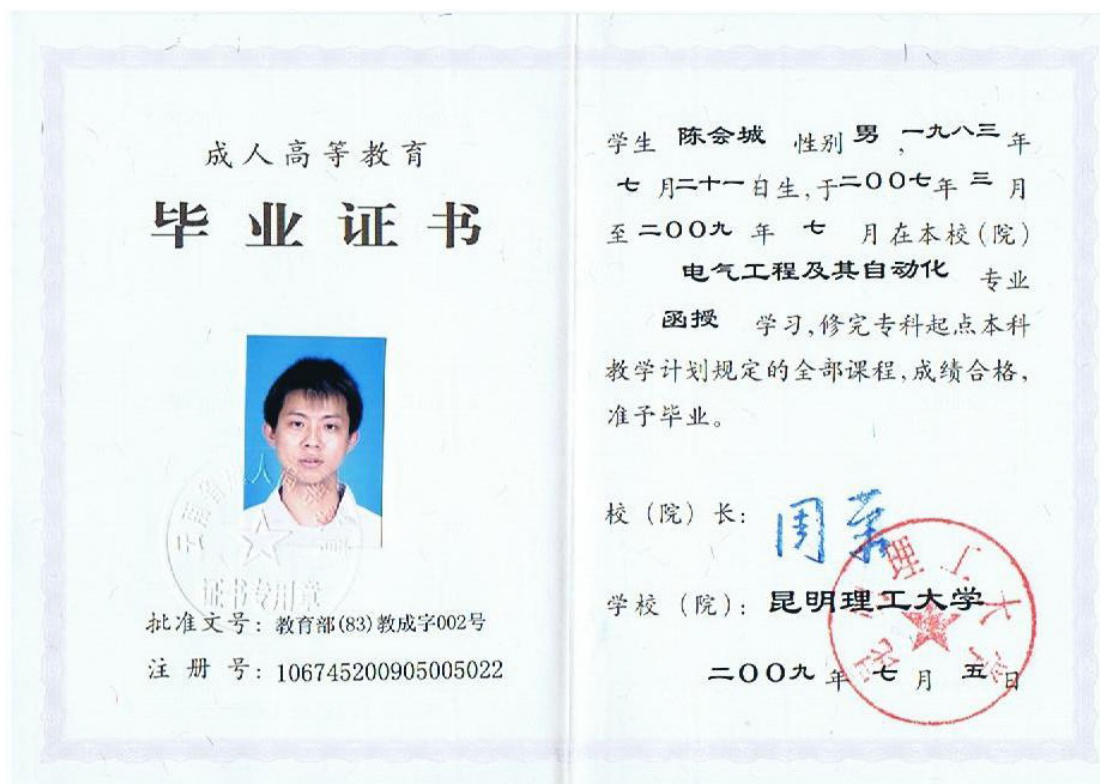 成人高等教育
毕业证书
云南省成人高等教育
证书专用章
批准文号：教育部(83)教成字002号
注册号：106745200905005022
学生 陈会城 性别 男，一九八三年
七月二十一日生，于二〇〇七年三月
至二〇〇九年七月在本校（院）
电气工程及其自动化 专业
函授 学习，修完专科起点本科
教学计划规定的全部课程，成绩合格，
准予毕业。
校（院）长：
学校（院）：昆明理工大学
昆明理工大学
二〇〇九年七月五日